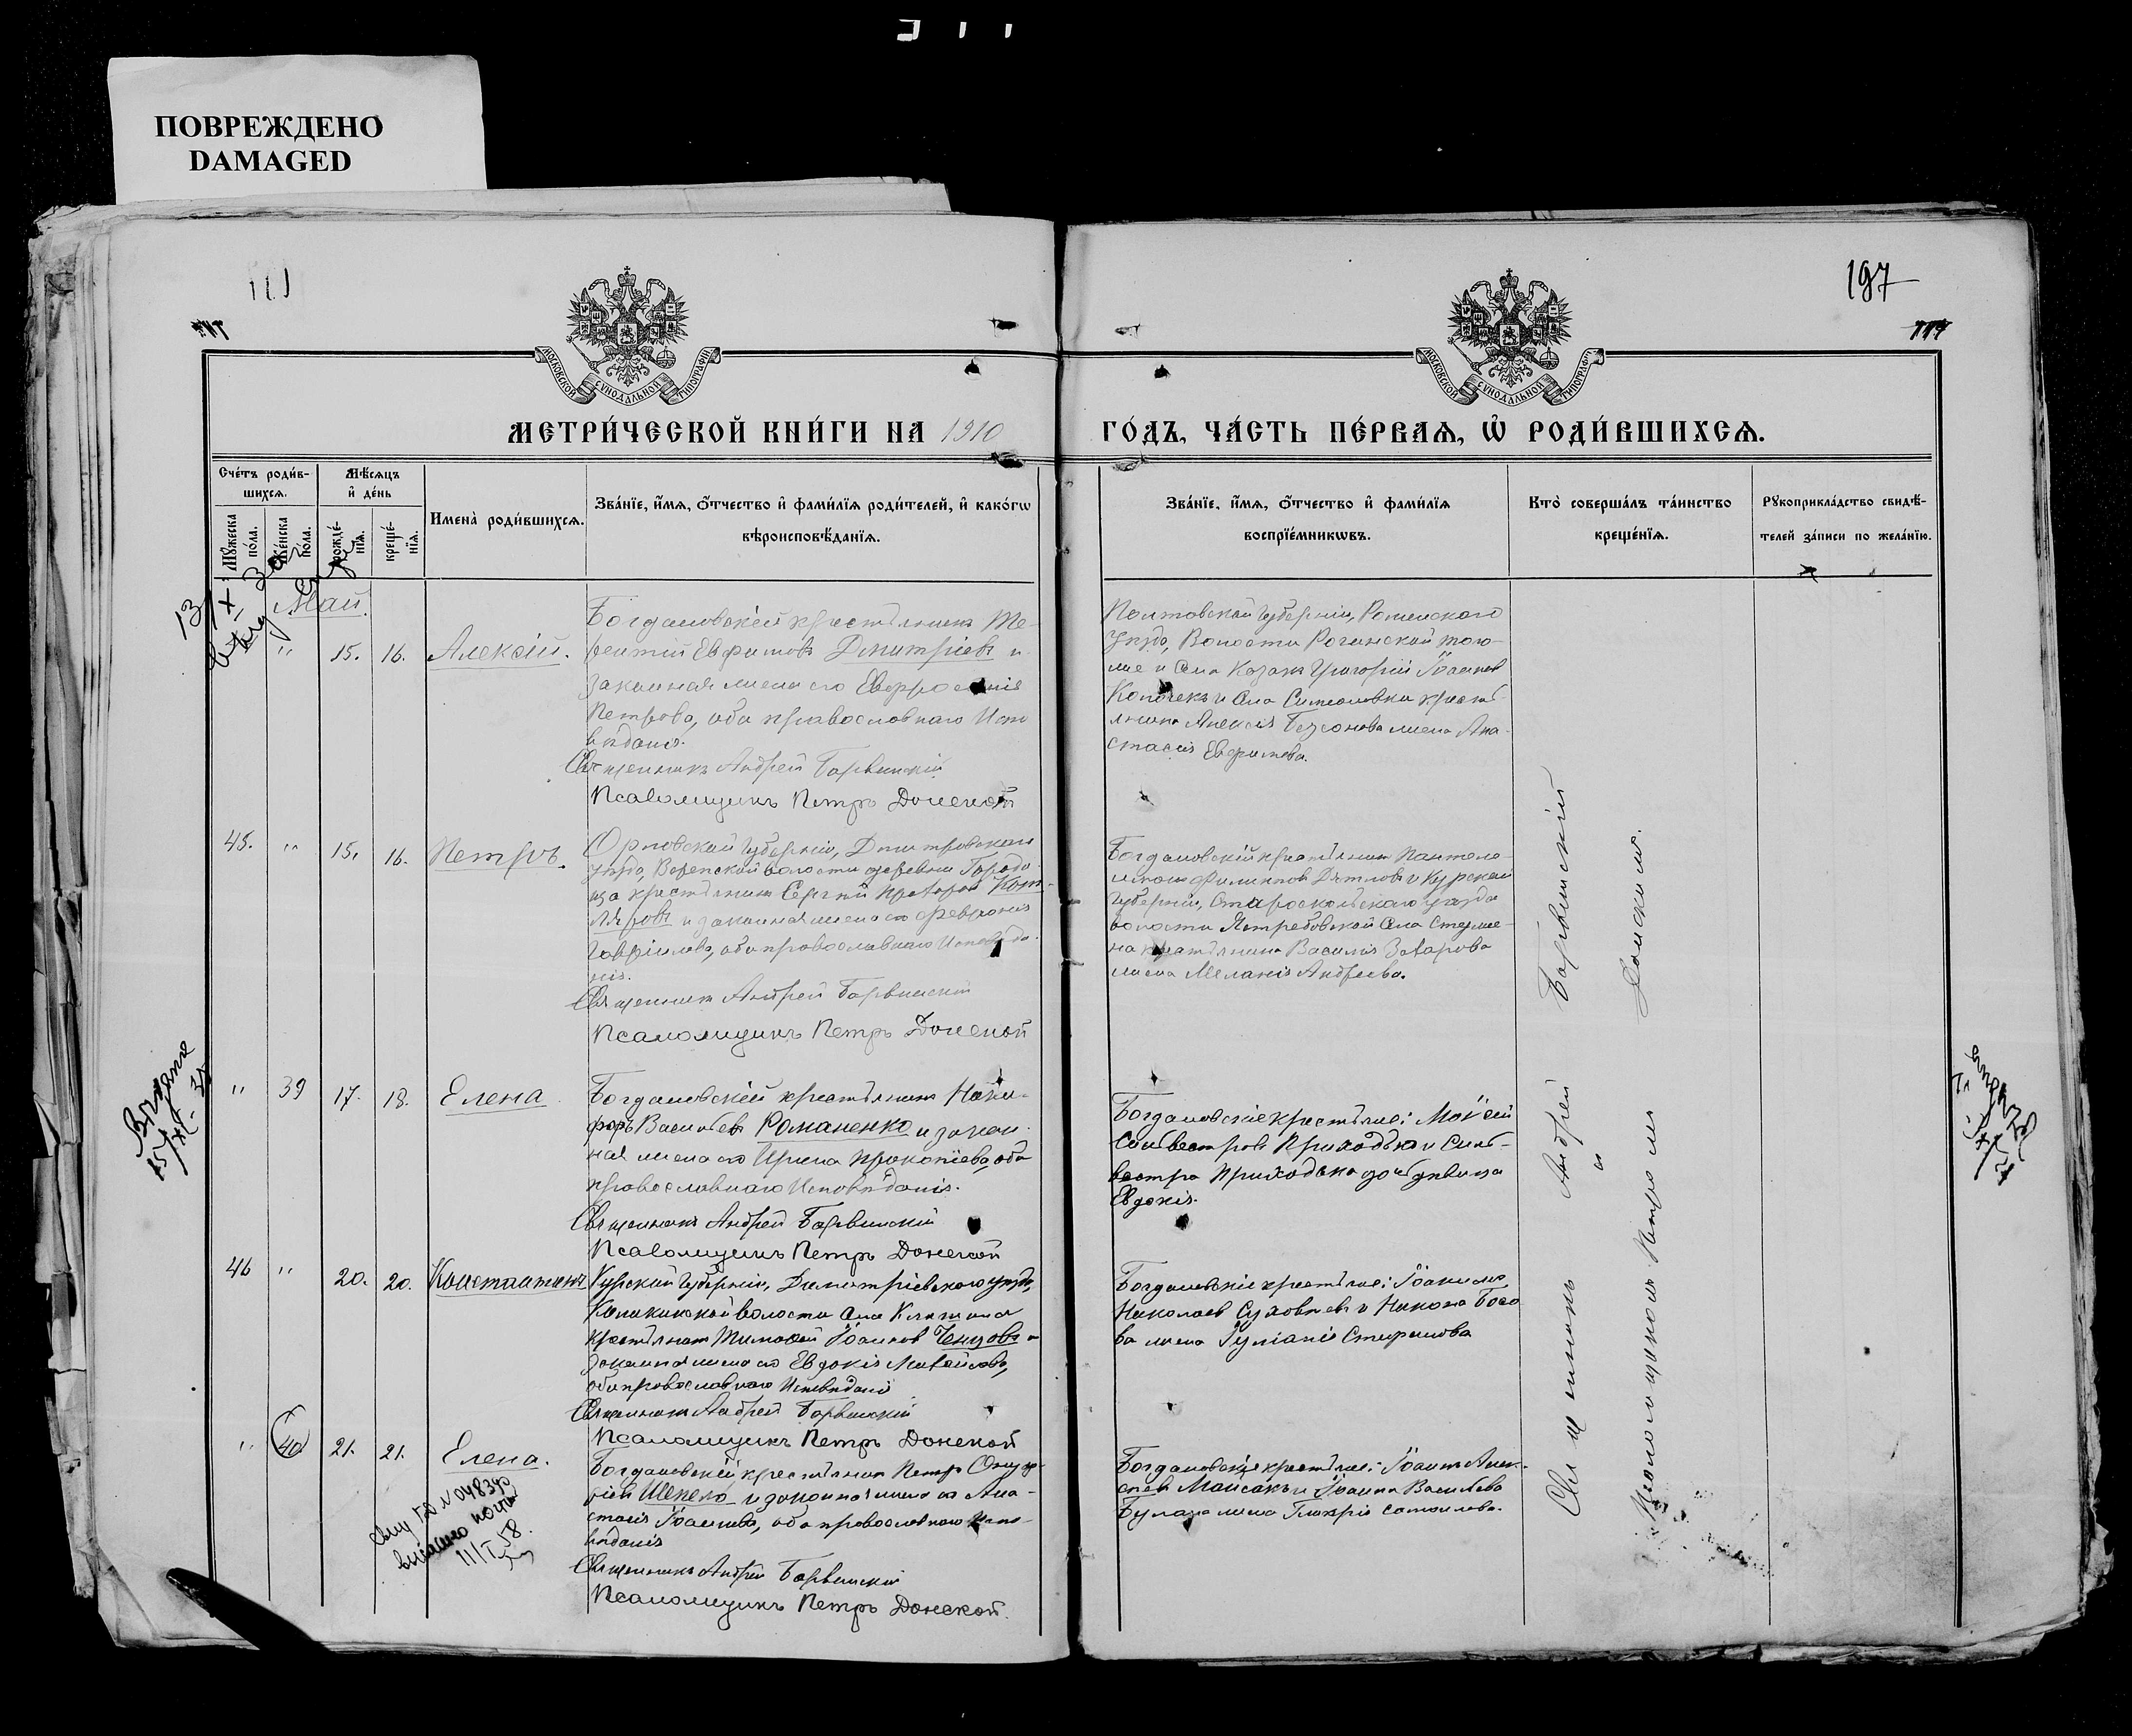 ПОВРЕЖДЕНО
DAMAGED
197
МОСКОВСКОЙ СѴНОДАЛЬНОЙ ТИПОГРАФІИ
МОСКОВСКОЙ СѴНОДАЛЬНОЙ ТИПОГРАФІИ
МЕТРИ́ЧЕСКОЙ КНИ́ГИ НА 1910
ГО́ДЪ, ЧА́СТЬ ПЕ́РВАѦ, Ѡ҆ РОДИ́ВШИХСѦ.
Сче́тъ роди́в-
шихсѧ.
Мꙋ́жеска
по́ла.
Же́нска
по́ла.
Мѣ́сѧцъ
и҆ де́нь
рожде́-
нїѧ.
креще́-
нїѧ.
Имена̀ роди́вшихсѧ.
Зва́нїе, и҆́мѧ, ѻ҆́тчество и҆ фами́лїѧ роди́телей, и҆ како́гѡ
вѣроисповѣ́данїѧ.
Зва́нїе, и҆́мѧ, ѻ҆́тчество и҆ фами́лїѧ
воспрїе́мникѡвъ.
Кто̀ соверша́лъ та́инство
креще́нїѧ.
Рꙋкоприкла́дство свидѣ́-
телей за́писи по жела́нїю.
Май.
" 15. 16. Алексій.
Богдановскій крестьянинъ Те-
рентій Евфимовъ Дмитріевъ и
законная жена его Евфросинія
Петрова, оба православнаго Испо
вѣданія.
Священникъ Андрей Барвинскій
Псаломщикъ Петръ Донской
Полтавской Губерніи, Роменскаго
Уѣзда, Волости Рогинской того-
же и села Казакъ Григорій Іоанновъ
и села Симоновки кресть-
янина Алексія жена Ана-
стасія Евфимова.
45. " 15. 16. Петръ.
Орловской Губерніи, Дмитровскаго
уѣзда, волости деревни Городи
ща крестьянинъ Сергій
и законная жена его Февронія
Гавріилова, оба православнаго Исповѣда-
нія.
Священникъ Андрей Барвинскій
Псаломщикъ Петръ Донской
Богдановскій крестьянинъ Пантеле-
имонъ Филиповъ Дѣтловъ и Курской
Губерніи, Старооскольскаго уѣзда
волости Ястребовской села
крестьянина Василія Захарова
жена Меланія Андреева.
" 39 17. 18. Елена
Богдановскій крестьянинъ Ники-
форъ Васильевъ Романенко и закон-
ная жена его Ирина Прокопіева, оба
православнаго Исповѣданія.
Священникъ Андрей Барвинскій
Псаломщикъ Петръ Донской
Богдановскіе крестьяне: Моѵсей
Сильвестровъ Приходько и Силь-
вестра Приходька дочь дѣвица
Евдокія.
46 " 20. 20. Константинъ
Курской Губерніи, Димитріевскаго уѣзда,
волости села
крестьянинъ Тимофей Іоанновъ Ченцовъ и
законная жена его Евдокія Матѳеова,
оба православнаго Исповѣданія
Священникъ Андрей Барвинскій
Псаломщикъ Петръ Донской
Богдановскіе крестьяне: Іоакимъ
Николаевъ Суховѣевъ и Никона Босо
ва жена Іуліанія Стефанова
" 40 21. 21. Елена.
Богдановскій крестьянинъ Петръ Онуф-
ріевъ Шепело и законная жена его Ана-
стасія Іоаннова, оба православнаго Испо-
вѣданія
Священникъ Андрей Барвинскій
Псаломщикъ Петръ Донской.
Богдановскіе крестьяне: Іоаннъ Алек-
сѣевъ Мойсакъ и Іоанна Васильева
жена Гликерія Самоилова.
11/I 58.
Священникъ Андрей Барвинскій
и
Псаломщикомъ Петромъ Донскимъ.